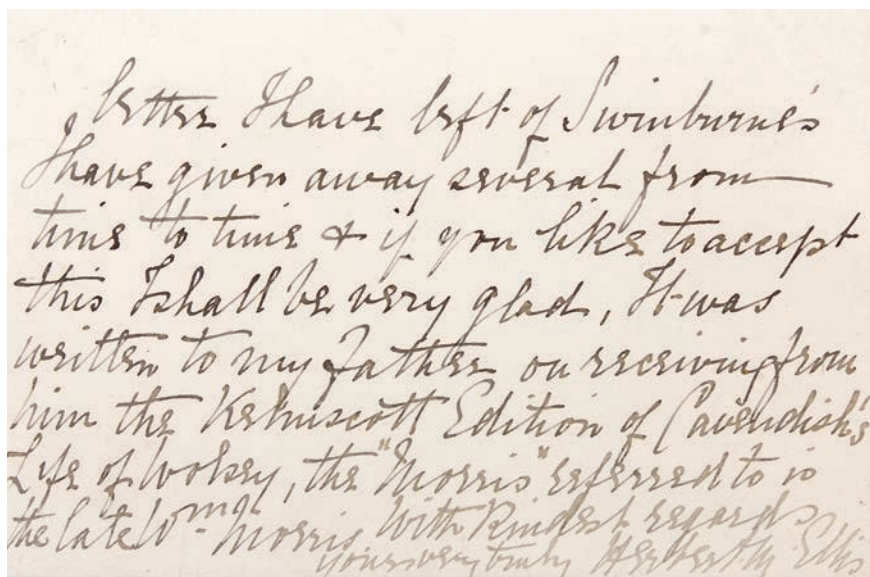 letter I have left of Swinburne's
I have given away several from
time to time & if you like to accept
this I shall be very glad, It was
written to my Father on receiving from
him the Kelmscott Edition of Cavendish's
Life of Wolsey, the "Morris" referred to is
the late Wm Morris With kindest regards
yours very truly Herbert M. Ellis